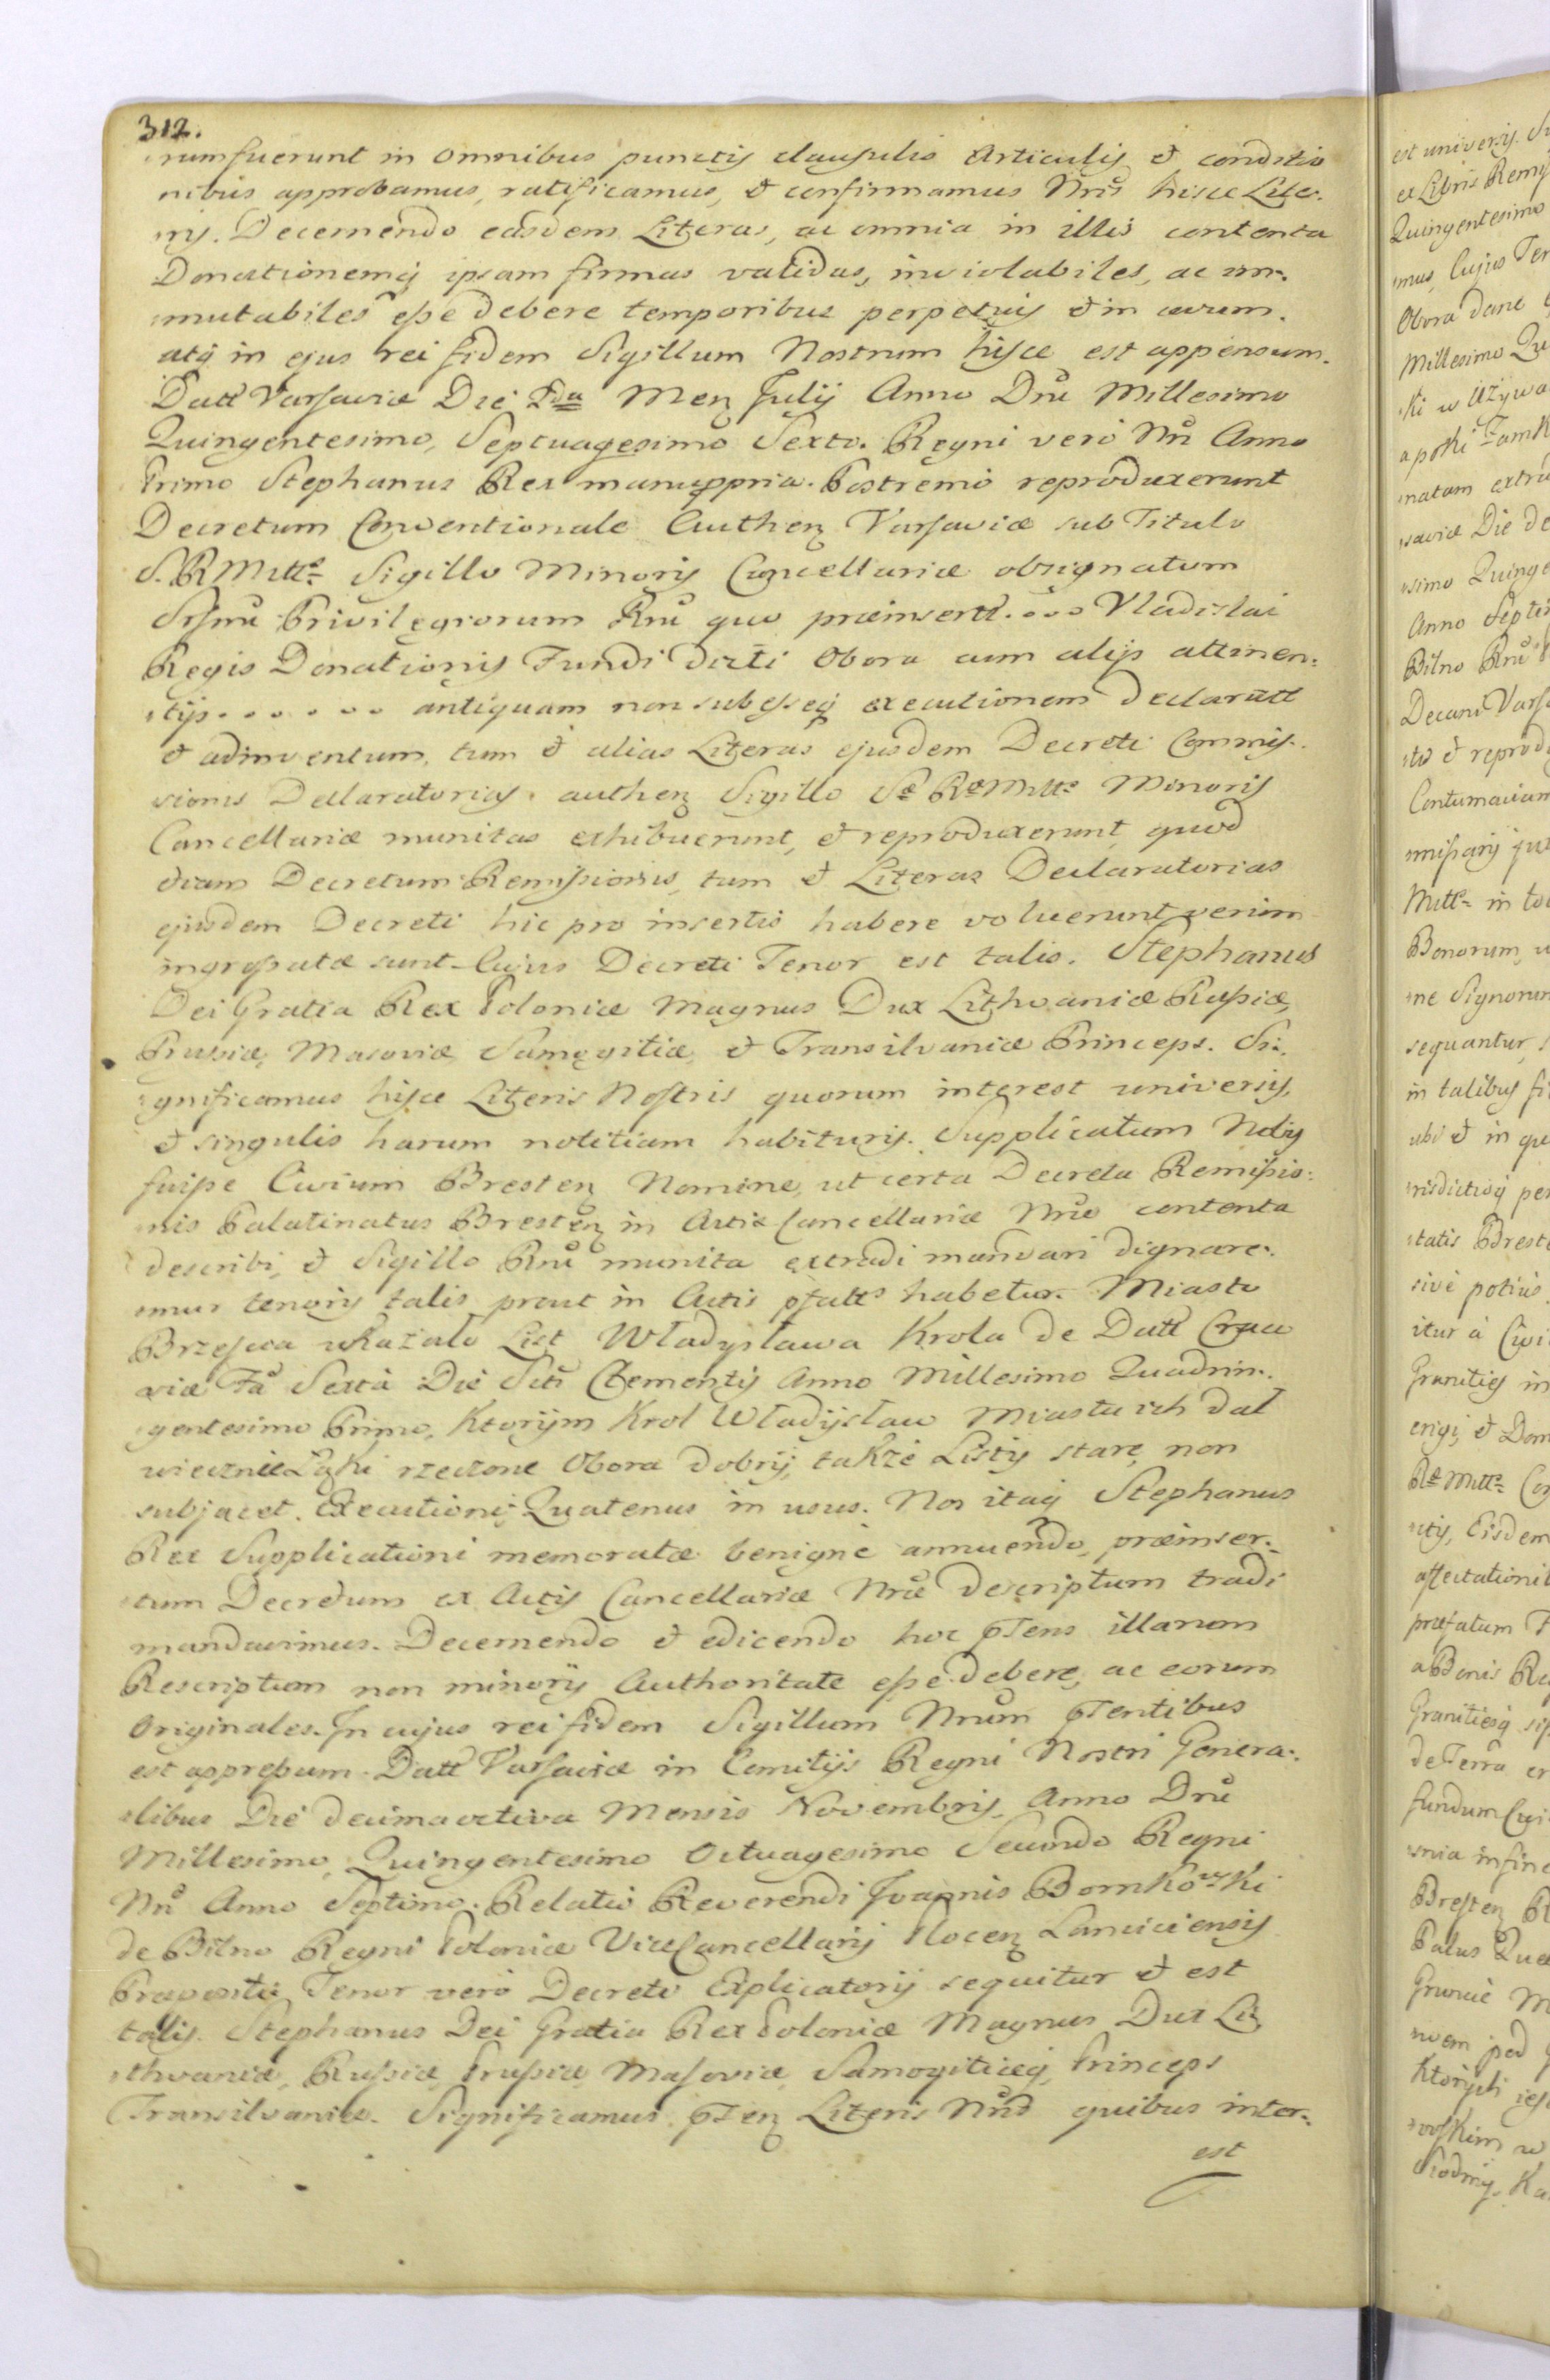 312.
rumfuerunt in omnibus punctis clausulis Articulis et conditio
nibus approbamus, ratificamus, et confirmamus Nris hisce Lite-
ris. Decernendo easdem Literas, ac omnia in illis contenta
Donationemq ipsam firmas validas, inviolabiles, ac im-
mutabiles esse debere temporibus perpetuis et in aevum.
atq in ejus rei fidem Sigillum Nostrum hisce est appensum.
Datt Varsaviæ Die 2da Menz Julij Anno Dni Millesimo
Quingentesimo, Septuagesimo Sexto. Regni vero Nri Anno
Primo Stephanus Rex manuppria. Postremo reproduxerunt
Decretum Conventionale Authenz Varsaviæ sub Titulo
S. R Mttis Sigillo Minoris Cancellariæ obsignatum
Privilegiorum Rni quo præinsertt. . . . Vladislai
Regis Donationis Fundi dicti Obora cum alijs attinen-
tijs . . . . . . . antiquam non subesseq executionem declaratt
et adinventum, tum et alias Literas ejusdem Decreti Commis-
sionis Declaratorias. authenz Sigillo Sæ Ræ Mttis Minoris
Cancellariæ munitas exhibuerunt, et reproduxerunt, quod
Decretum Remissionis, tum et Literas Declaratorias
ejusdem Decreti hic pro insertis habere voluerunt verum
ingrossatæ sunt. Cujus Decreti Tenor est talis. Stephanus
Dei Gratia Rex Poloniæ Magnus Dux Lithvaniæ Russiæ,
Prussiæ, Masoviæ Samogitiæ, et Transilvaniæ Princeps. Si-
gnificamus hisce Literis Nostris quorum interest universis,
et singulis harum notitiam habituris. Supplicatum Nobis
fuisse Civium Brestenz Nomine, ut certa Decreta Remissio-
nis Palatinatus Brestenz in Actis Cancellariæ Nræ contenta
describi, et Sigillo Rni munita extradi mandari dignare-
mur tenoris talis prout in Actis pfatts habetur. Miasto
Brzescia ukazało List Władysława Krola de Datt Craco
viæ Fa Sexta Die Sti Clementis Anno Millesimo Quadrin-
gentesimo Primo, Ktorym Krol Władysław Miastu ich dał
wiecznie Łąki rzeczone Obora dobry, takze Listy stare, non
subjacet. Executionis Quatenus in usus. Nos itaq Stephanus
Rex Supplicationi memoratæ benigne annuendo, præinser-
tum Decretum ex Actis Cancellariæ Nræ descriptum tradi
mandavimus. Decernendo et edicendo hoc pTens illarum
Rescriptum non minoris Authoritate esse debere, ac eorum
Originales. In cujus rei fidem Sigillum Nrum pTentibus
est appressum. Datt Varsaviæ in Comitijs Regni Nostri Genera-
libus Die decima octava Mensis Novembris, Anno Dni
Millesimo, Quingentesimo Octuagesimo Secundo Regni
Nri Anno Septimo. Relatio Reverendi Joannis Borukowski
de Bilno Regni Poloniæ ViceCancellarij Plocenz Lanciciensis
Præpositi, Tenor vero Decreti Explicatorij sequitur et est
talis. Stephanus Dei Gratia Rex Poloniæ Magnus Dux Li-
thvaniæ, Russiæ, Prussiæ, Masoviæ, Samogitiæq, Princeps
Transilvaniæ. Significamus pTenz Literis Nris quibus inter-
est